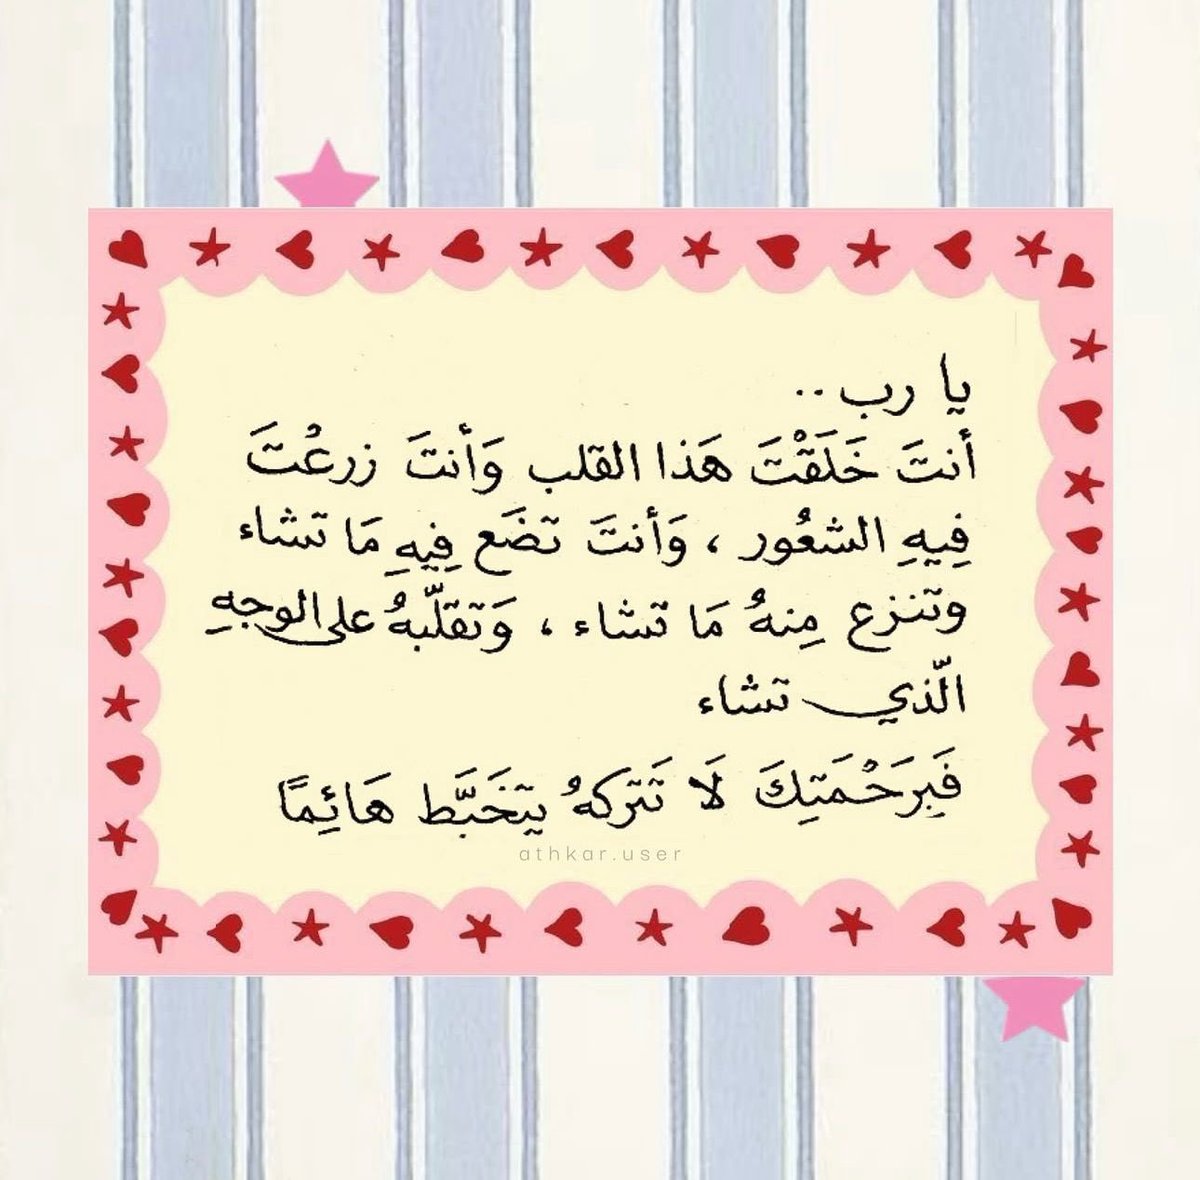 يا رب ..
أنتَ خَلَقْتَ هَذا القلب وَأنتَ زرعْتَ
فِيهِ الشعُور ، وَأنتَ تضَع فِيهِ مَا تشاء
وتنزع مِنهُ مَا تشاء ، وَتقلّبهُ على الوجهِ
الّذي تشاء
فَبِرَحْمَتِكَ لَا تَتركهُ يتخَبَّط هَائِمًا
athkar.user